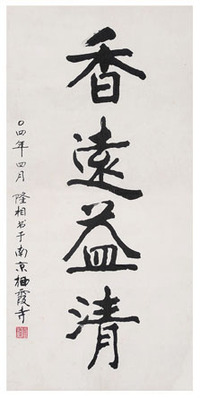 香遠益清
〇四年四月 隆相书于南京栖霞寺